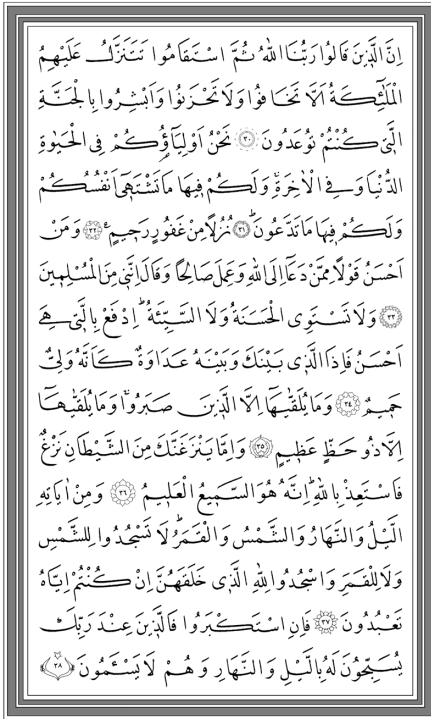 اِنَّ الَّذ۪ينَ قَالُوا رَبُّنَا اللّٰهُ ثُمَّ اسْتَقَامُوا تَتَنَزَّلُ عَلَيْهِمُ
الْمَلٰٓئِكَةُ اَلَّا تَخَافُوا وَلَا تَحْزَنُوا وَاَبْشِرُوا بِالْجَنَّةِ
الَّت۪ي كُنْتُمْ تُوعَدُونَ ﴿٣٠﴾ نَحْنُ اَوْلِيَٓاؤُ۬كُمْ فِي الْحَيٰوةِ
الدُّنْيَا وَفِي الْاٰخِرَةِۚ وَلَكُمْ ف۪يهَا مَا تَشْتَه۪ٓي اَنْفُسُكُمْ
وَلَكُمْ ف۪يهَا مَا تَدَّعُونَۜ ﴿٣١﴾ نُزُلًا مِنْ غَفُورٍ رَح۪يمٍ۟ ﴿٣٢﴾ وَمَنْ
اَحْسَنُ قَوْلًا مِمَّنْ دَعَٓا اِلَى اللّٰهِ وَعَمِلَ صَالِحًا وَقَالَ اِنَّن۪ي مِنَ الْمُسْلِم۪ينَ
﴿٣٣﴾ وَلَا تَسْتَوِي الْحَسَنَةُ وَلَا السَّيِّئَةُۜ اِدْفَعْ بِالَّت۪ي هِيَ
اَحْسَنُ فَاِذَا الَّذ۪ي بَيْنَكَ وَبَيْنَهُ عَدَاوَةٌ كَاَنَّهُ وَلِيٌّ
حَم۪يمٌ ﴿٣٤﴾ وَمَا يُلَقّٰيهَٓا اِلَّا الَّذ۪ينَ صَبَرُواۚ وَمَا يُلَقّٰيهَٓا
اِلَّا ذُو حَظٍّ عَظ۪يمٍ ﴿٣٥﴾ وَاِمَّا يَنْزَغَنَّكَ مِنَ الشَّيْطَانِ نَزْغٌ
فَاسْتَعِذْ بِاللّٰهِۜ اِنَّهُ هُوَ السَّم۪يعُ الْعَل۪يمُ ﴿٣٦﴾ وَمِنْ اٰيَاتِهِ
الَّيْلُ وَالنَّهَارُ وَالشَّمْسُ وَالْقَمَرُۜ لَا تَسْجُدُوا لِلشَّمْسِ
وَلَا لِلْقَمَرِ وَاسْجُدُوا لِلّٰهِ الَّذ۪ي خَلَقَهُنَّ اِنْ كُنْتُمْ اِيَّاهُ
تَعْبُدُونَ ﴿٣٧﴾ فَاِنِ اسْتَكْبَرُوا فَالَّذ۪ينَ عِنْدَ رَبِّكَ
يُسَبِّحُونَ لَهُ بِالَّيْلِ وَالنَّهَارِ وَهُمْ لَا يَسْـَٔمُونَ ﴿٣٨﴾